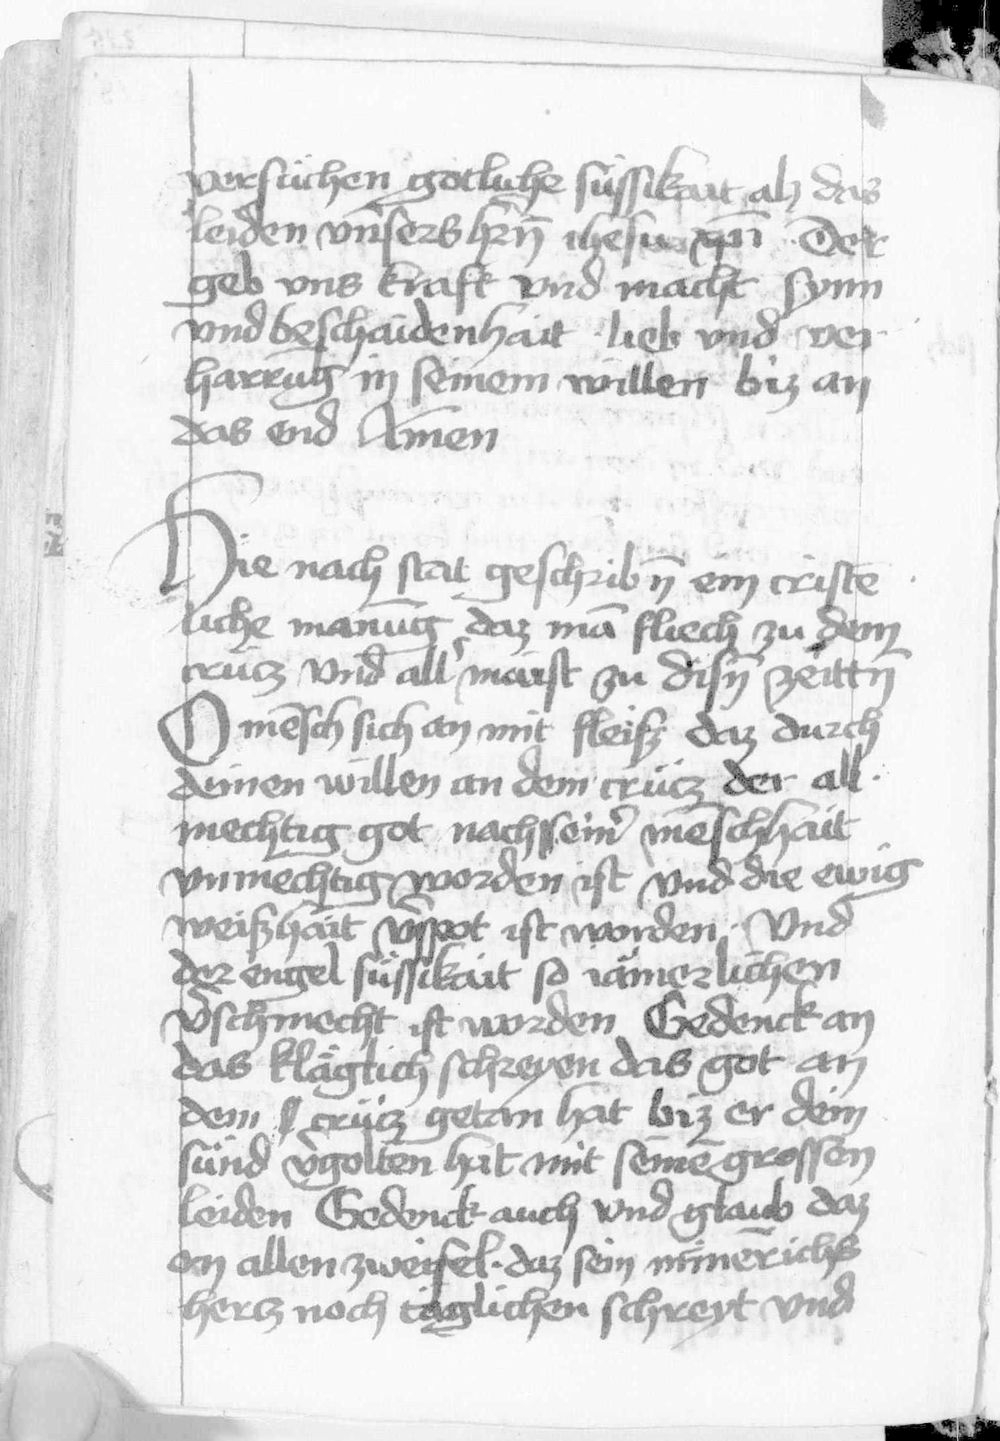 versuͤchen gotliche suͤssikait als das
leiden vnsers hrn̄ ihesu xp̄i Der
geb vns kraft vnd macht synn
vnd beschaidenhait lieb vnd ver
harrūg in seinem willen biz an
das end Amen
Hie nach stat geschribn̄ ein cristē
liche manūg daz mā fliech zu dem
crücz vnd all' maist zu disn̄ zeittn̄
O mēsch sich an mit fleiß daz durch
deinen willen an dem crücz der all
mechtig got nach sein' mēschhait
vnmechtig worden ist vnd die ewig
weißhait v̄spot ist worden. Vnd
der engel süssikait so iämerlichen
v̄schmecht ist worden Gedenck an
das kläglich schreyen das got an
dem crücz getan hat biz er dein
sünd v̄golten hat mit seinē grossen
leiden Gedenck auch vnd glaub daz
on allen zweifel. daz sein minnērichs
hertz noch täglichen schreyt vnd